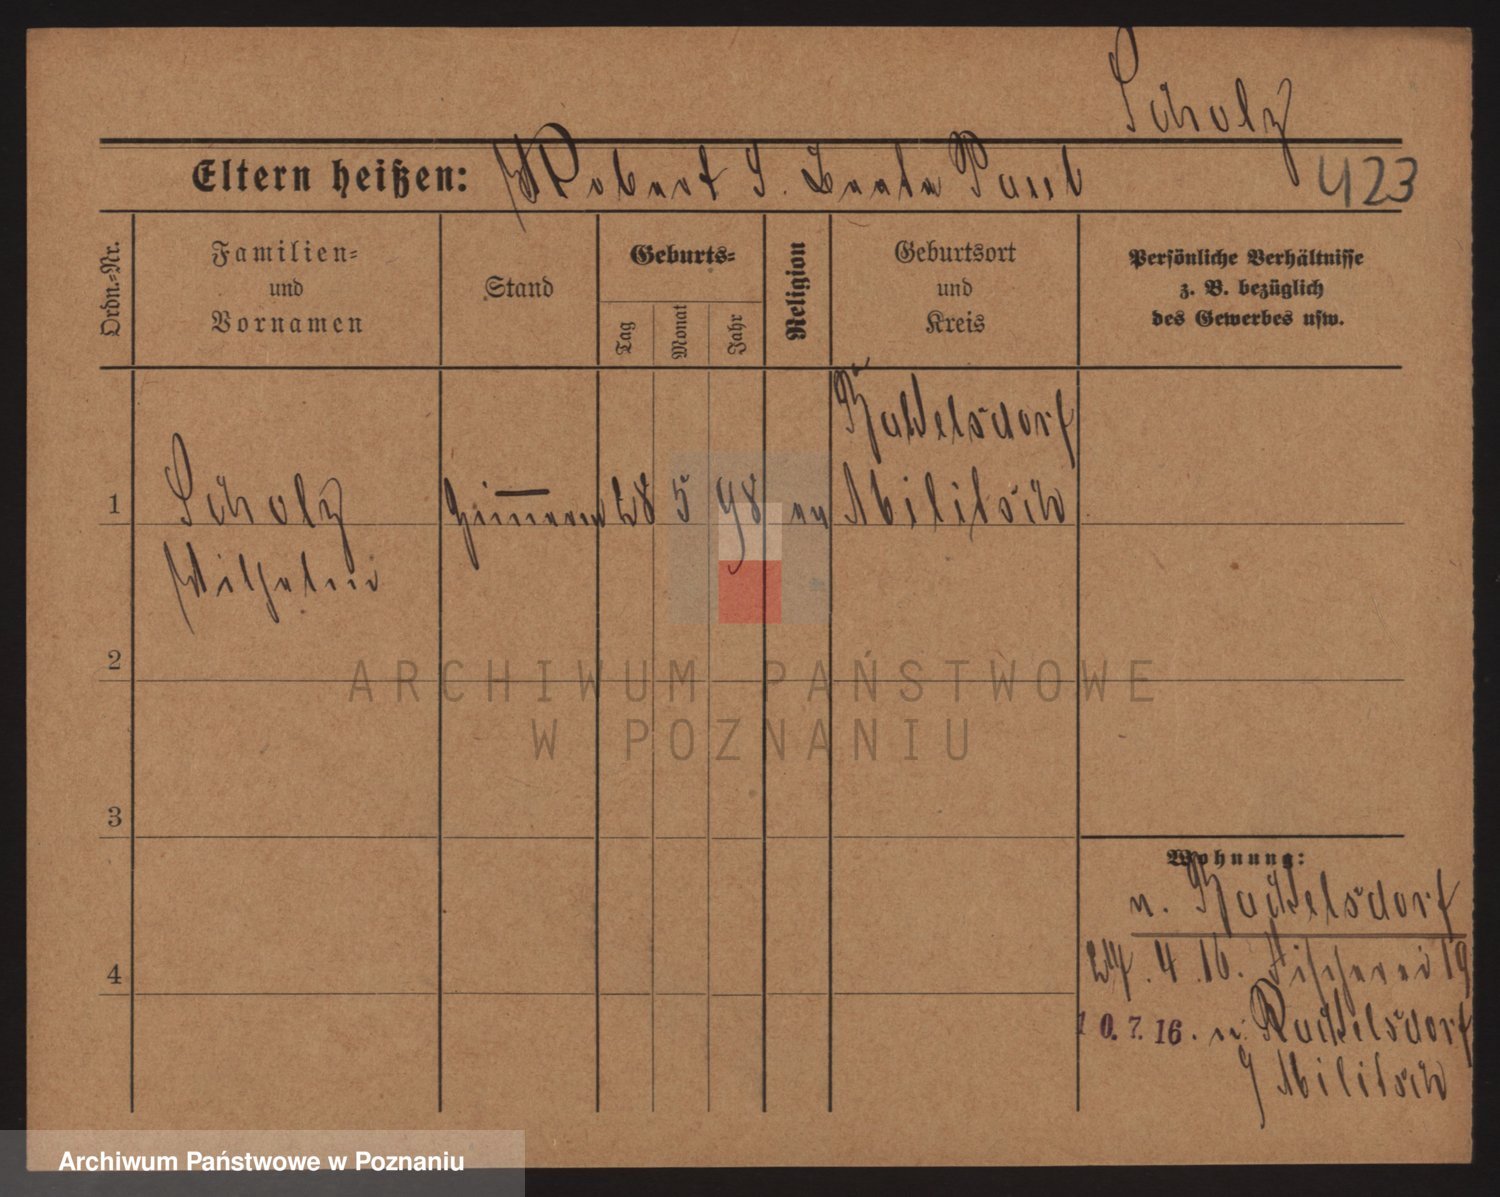 Scholz
Eltern heißen: Robert S. Beate Paul
423
Ordn.-Nr.
Familien- und Vornamen
Stand
Geburts-
Tag
Monat
Jahr
Religion
Geburtsort und Kreis
Persönliche Verhältnisse z. B. bezüglich des Gewerbes usw.
1
Scholz
Wilhelm
28 5 98 ev
Militsch
2
3
4
Wohnung:
n.
24.4.16. Fischerei 19
10.7.16. n.
Militsch
ARCHIWUM PAŃSTWOWE
W POZNANIU
Archiwum Państwowe w Poznaniu